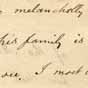 melancholly
his family is
I most